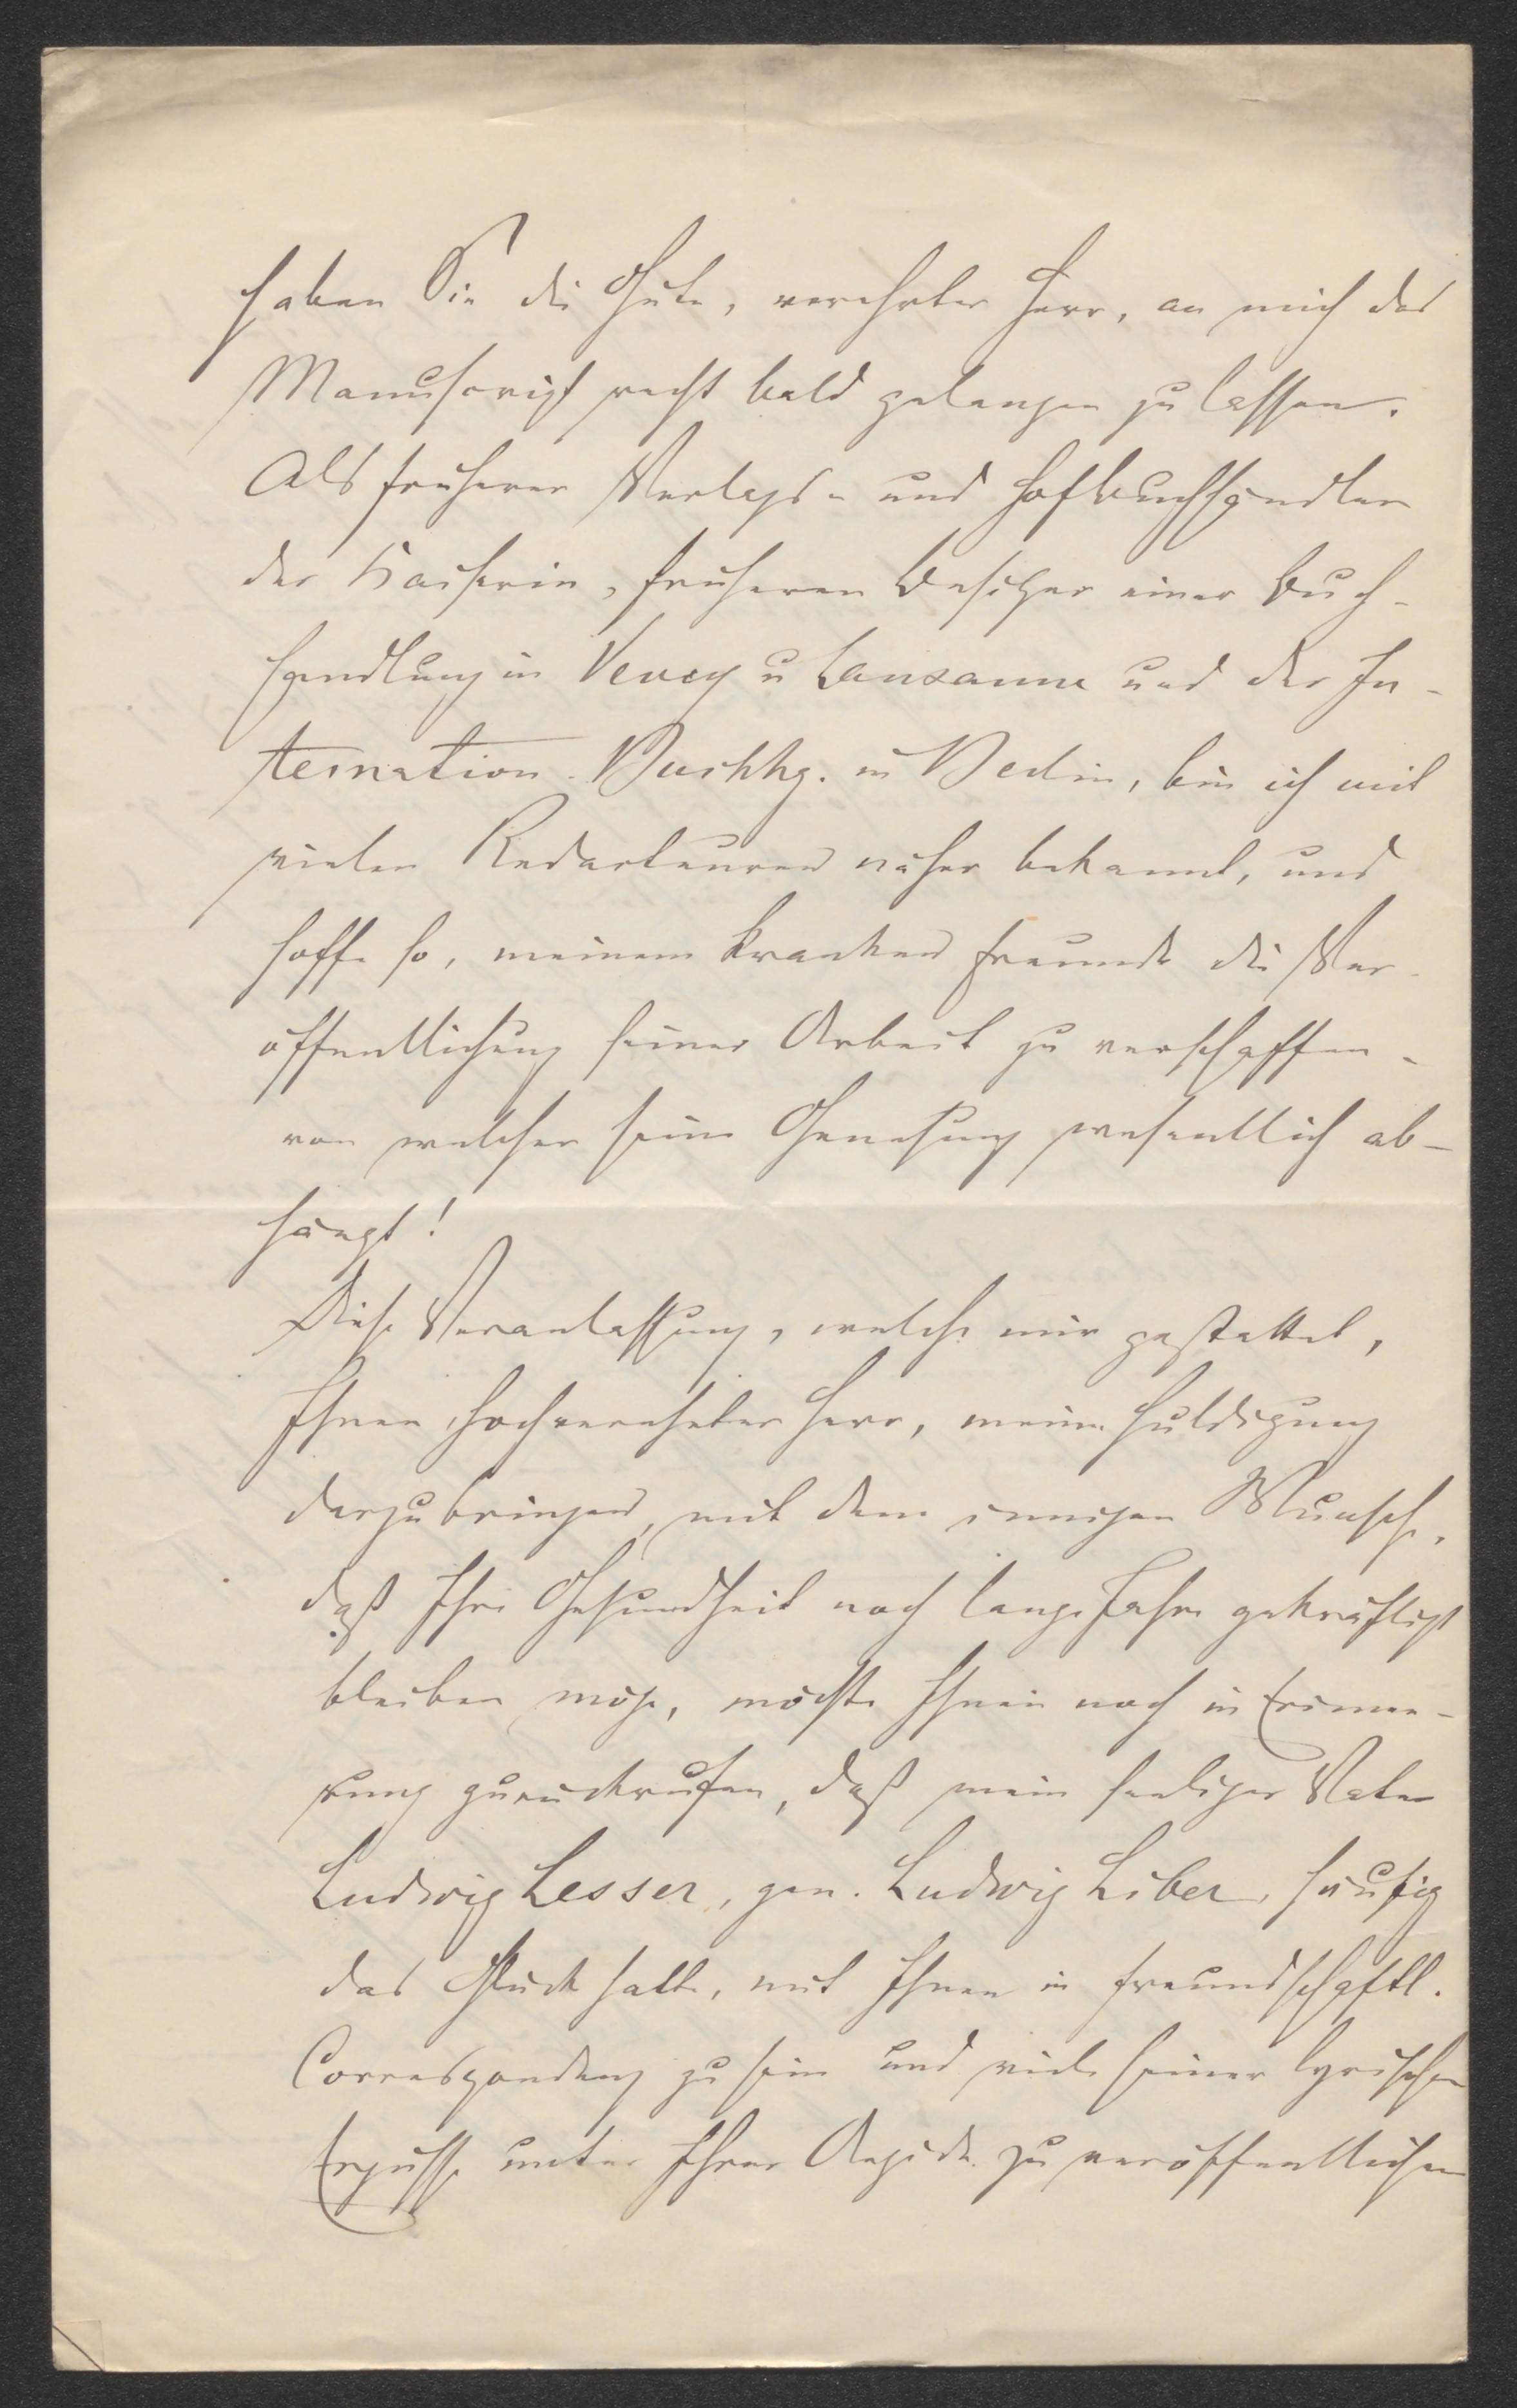 haben Sie die Güte, verehrter Herr, an mich das
Manuscript recht bald gelangen zu lassen.
Als früherer Verlags- und Hofbuchhändler
der Kaiserin, früheren Besitzer einer Buch-
handlung in Vevey u Lausanne und der In-
ternation. Buchhg. in Berlin, bin ich mit
vielen Redacteuren näher bekannt, und
hoffe so, meinem kranken Freunde die Ver-
öffentlichung seiner Arbeit zu verschaffen -
von welcher seine Genesung wesentlich ab-
hängt!
Diese Veranlassung, welche mir gestattet,
Ihnen, hochverehrter Herr, meine Huldigung
darzubringen, mit dem innigen Wunsche,
daß Ihre Gesundheit noch lange Jahre gekräftigt
bleiben möge, möchte Ihnen noch in Erinne-
rung zurückrufen, daß mein seeliger Vater
Ludwig Lesser, gen. Ludwig Liber, häufig
das Glück hatte, mit Ihnen in freundschaftl.
Correspondenz zu sein und viele seiner lyrischen
Ergüsse unter Ihrer Aegide zu veröffentlichen